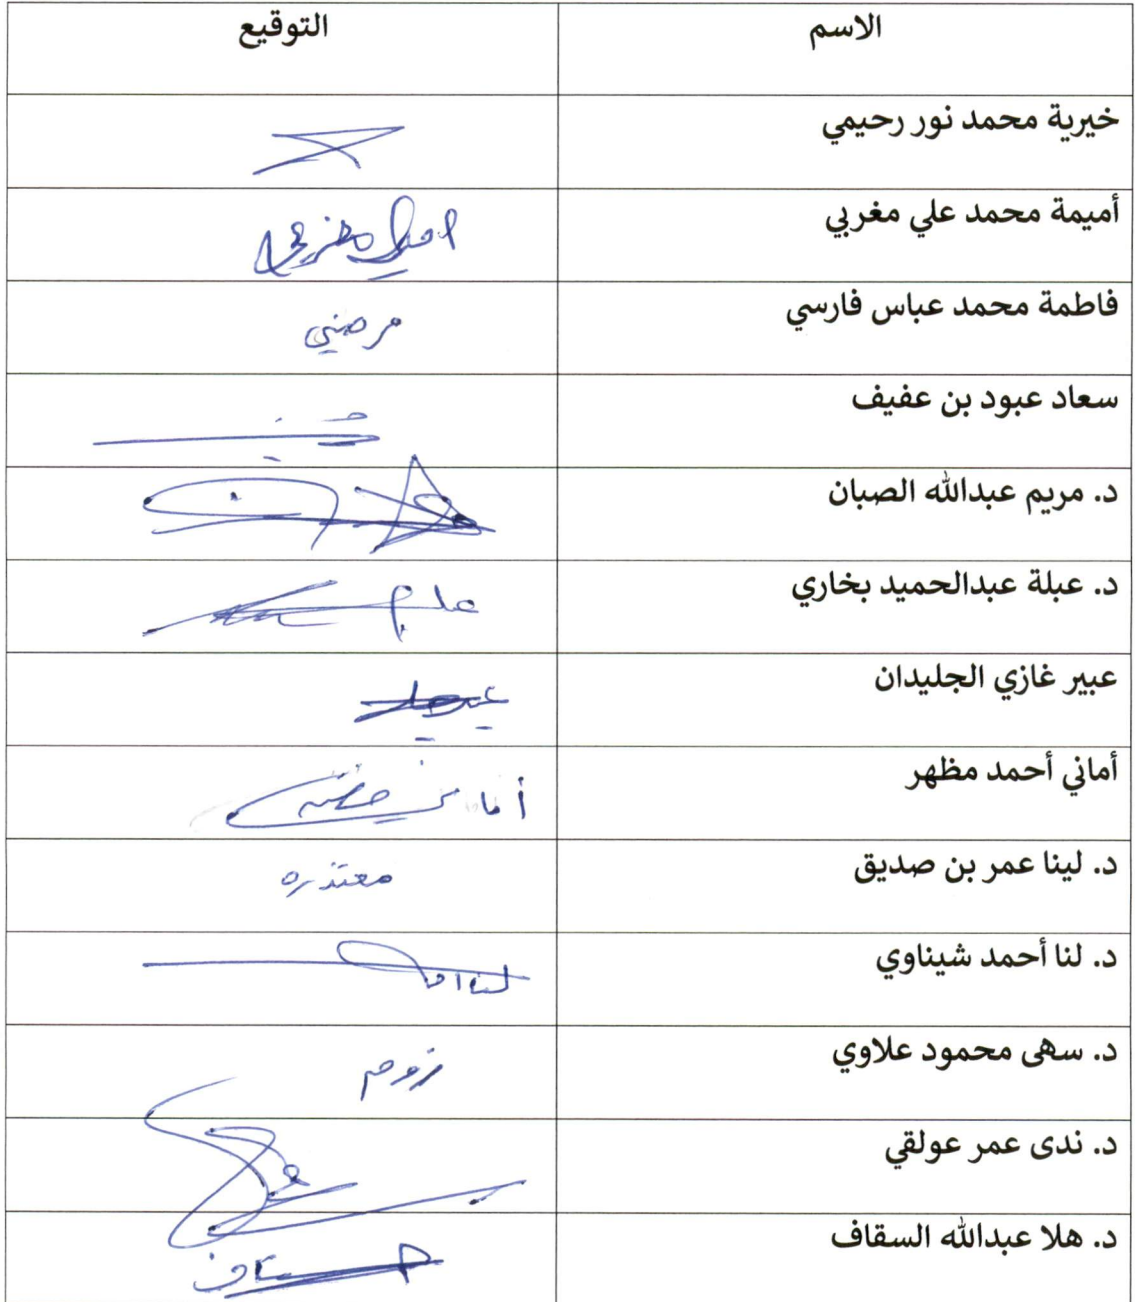 الاسم التوقيع
خيرية محمد نور رحيمي
أميمة محمد علي مغربي
فاطمة محمد عباس فارسي مرضي
سعاد عبود بن عفيف
د. مريم عبدالله الصبان
د. عبلة عبدالحميد بخاري
عبير غازي الجليدان
أماني أحمد مظهر
د. لينا عمر بن صديق معتذره
د. لنا أحمد شيناوي
د. سهى محمود علاوي زووم
د. ندى عمر عولقي
د. هلا عبدالله السقاف